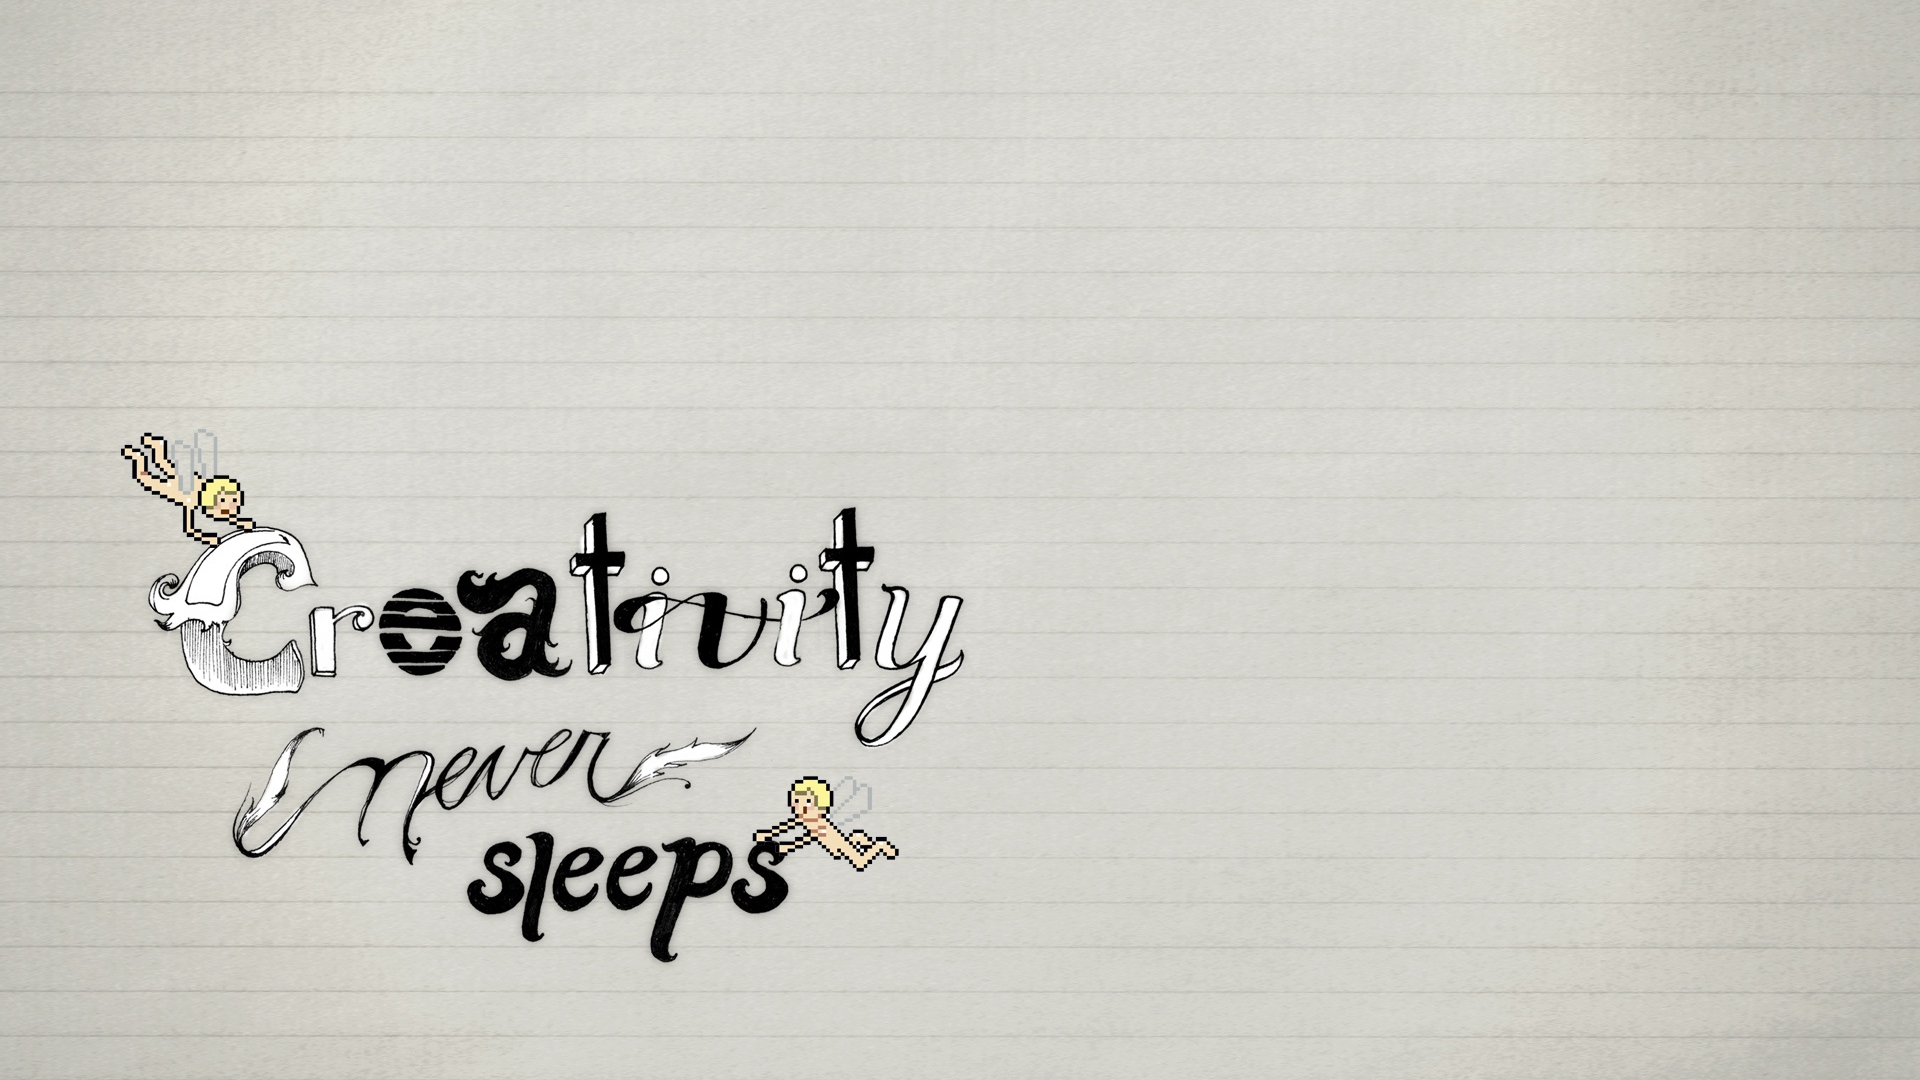 Creativity
never
sleeps